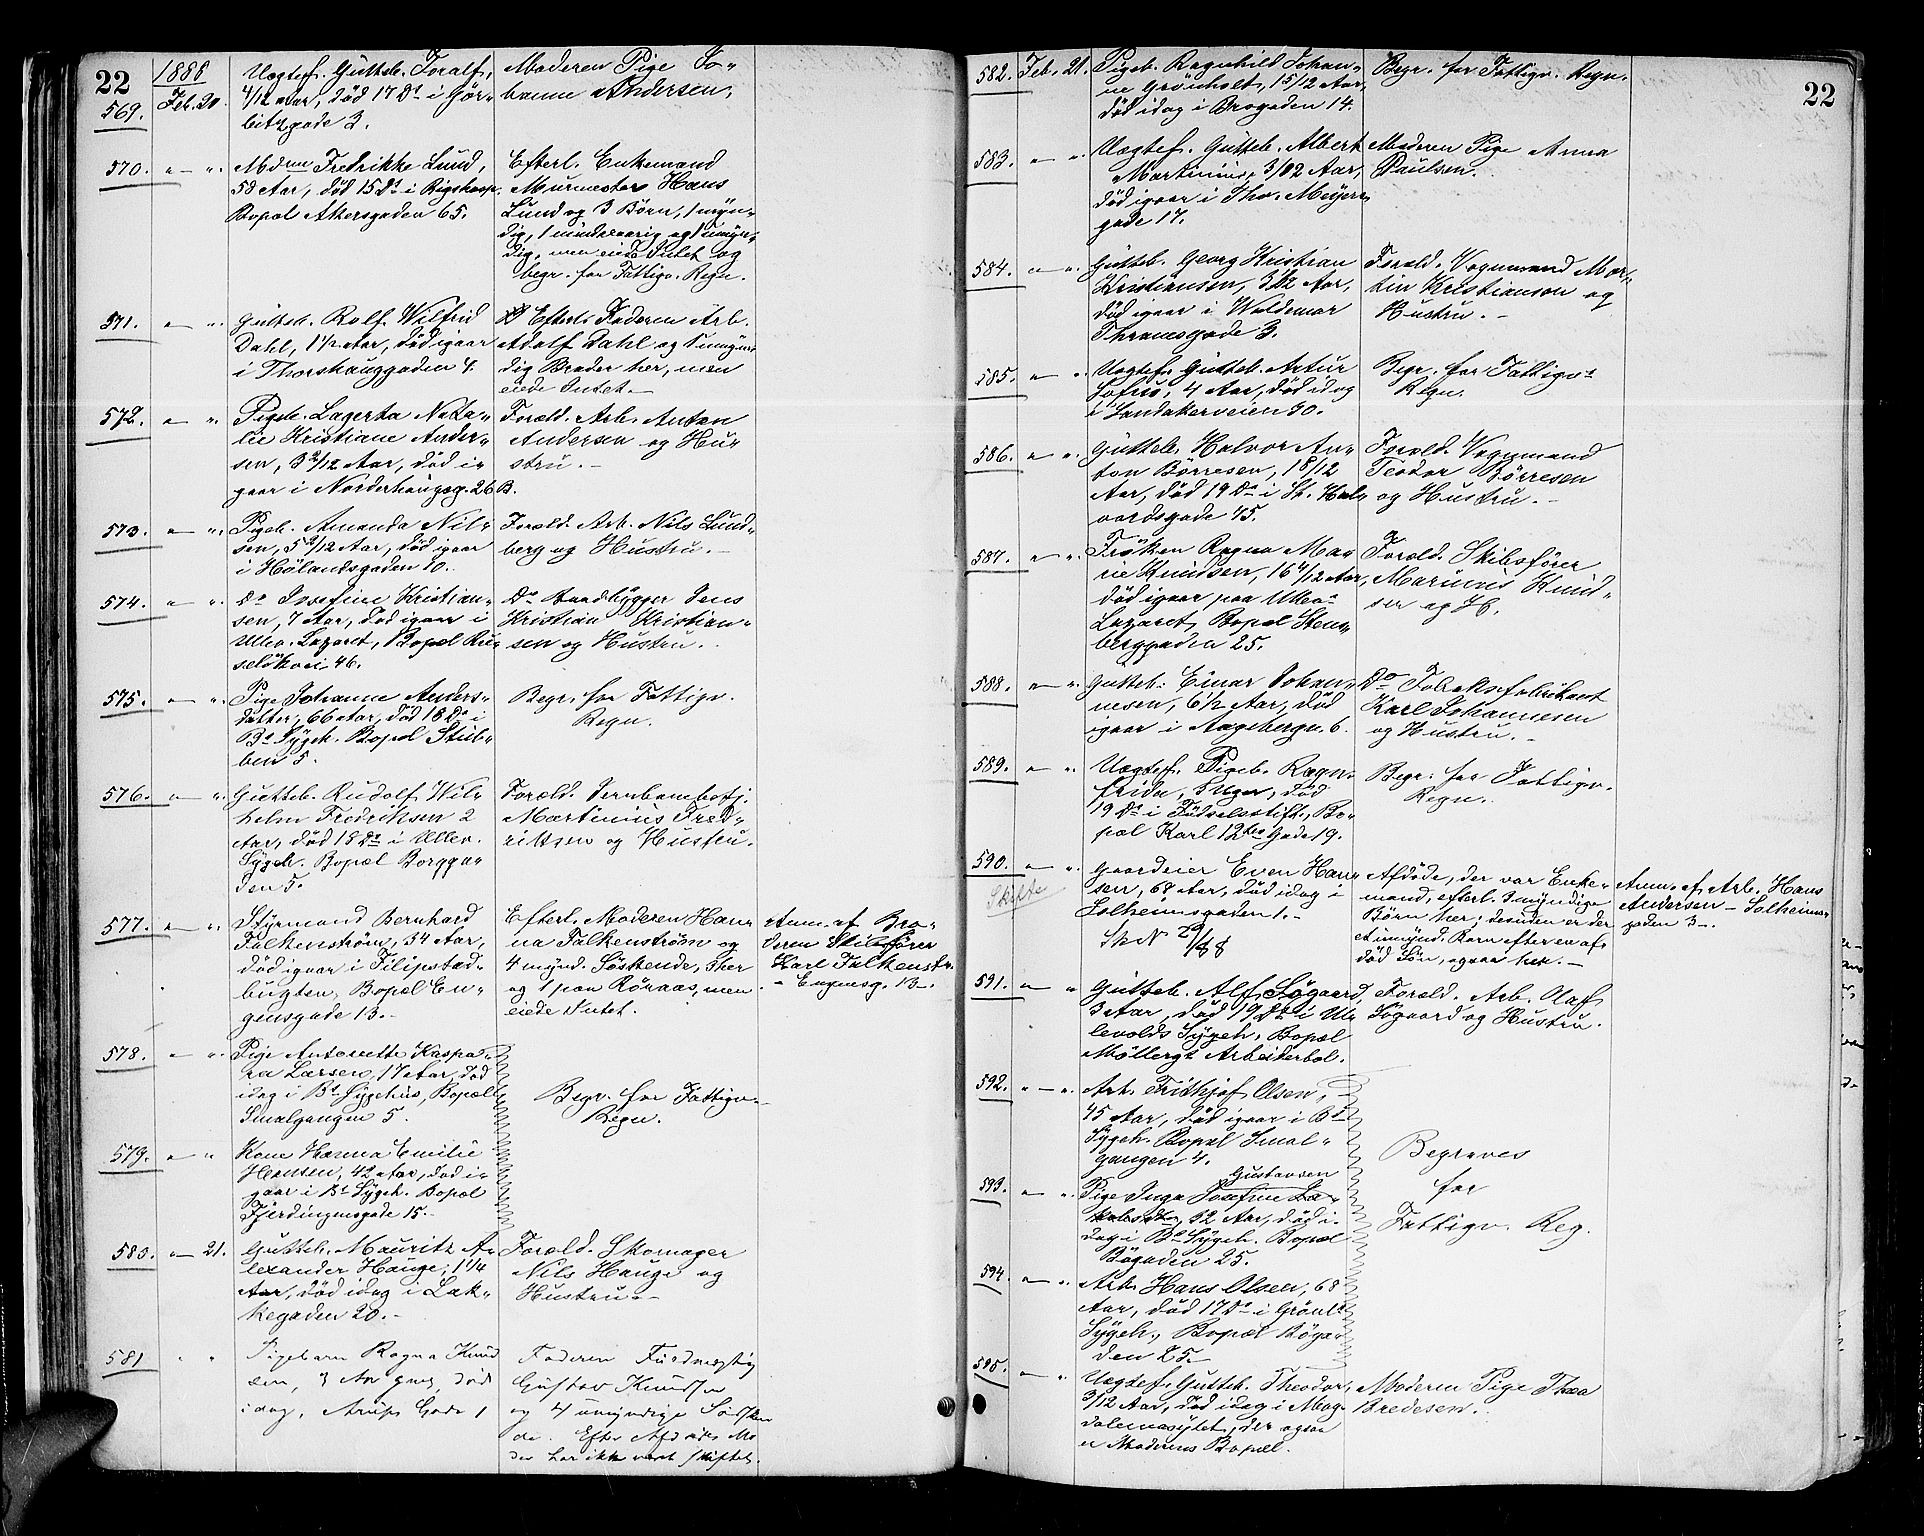 22
1888
569. Feb. 20. Uægtef. Gutteb. Toralf,
4/12 Aar, død 17 Ds i Gør-
bitzgade 3.
Moderen Pige Jo-
hanne Andersen.
570. " - " Mdm Fredrikke Lund,
58 Aar, død 15 Ds i Rigshosp.
Bopæl Akersgaden 65.
Efterl. Enkemand
Murmester Hans
Lund og 3 Børn, 1 myn-
dig, 1 mindreaarig og 1 umyn-
dig, men eiede Intet og
begr. for Fattigv. Regn.
571. " - " Gutteb. Rolf Wilfrid
Dahl, 1 1/2 Aar, død igaar
i Thorshauggaden 4.
Efterl. Faderen Arb.
Adolf Dahl og 1 umyn-
dig Broder her, men
eiede Intet. -
572. " - " Pigeb. Lagerta Nata-
lie Kristiane Ander-
sen, 3 2/12 Aar, død i-
gaar i Norderhougsg. 26 B.
Foræld. Arb. Anton
Andersen og Hu-
stru. -
573. " - " Pigeb. Amanda Nil-
sen, 5 2/12 Aar, død igaar
i Hølandsgaden 10.
Foræld. Arb. Nils Lund-
berg og Hustru. -
574. " - " Do Josefine Kristian-
sen, 7 Aar, død igaar i
Ullev. Lazaret, Bopæl Ru-
seløkvei 46.
Do Baadbygger Jens
Kristian Kristian-
sen og Hustru.
575. " - " Pige Johanne Anders-
datter, 66 Aar, død 18 Ds i
Bs Sygeh. Bopæl Stub-
ben 5.
Begr. for Fattigv.
Regn.
576. " - " Gutteb. Rudolf Wil-
helm Fredriksen 2
Aar, død 18 Ds i Ullev.
Sygeh. Bopæl Borgga-
den 5.
Foræld. Jernbanebetj.
Martinius Fred-
riksen og Hustru.
577. " - " Styrmand Bernhard
Falkenstrøm, 34 Aar,
død igaar i Filipstad-
bugten, Bopæl Eu-
gensgade 13. -
Efterl. Moderen Han-
na Falkenstrøm og
4 mynd. Søskende, 3 her
og 1 paa Røraas, men
eiede Intet.
Anm. af Bro-
deren Skibsfører
Karl Falkenstr.
- Eugensg. 13 -.
578. " - " Pige Antonette Kaspa-
ra Larsen, 17 Aar, død
idag i Bs Sygehus, Bopæl
Smalgangen 5.
Begr. for Fattigv.
Regn.
579. " - " Kone Hanna Emilie
Hansen, 42 Aar, død i-
gaar i Bs Sygeh. Bopæl
Fjerdingensgade 15. -
580. " - 21. Gutteb. Mauritz A-
lexander Hauge, 1 1/4
Aar, død idag i Lak-
kegaden 20. -
Foræld. Skomager
Nils Hauge og
Hustru. -
581 " " Pigebarn Ragna Knud
sen, 3 Aar gml, død
idag, Arups Gade 1
Faderen
Gustav Knudsen
og 4 umyndige Søsken
de. Efter Afdødes Mo
der har ikke været skiftet.
22
582. Feb. 21. Pigeb. Ragnhild Johan-
ne Grønholt, 1 5/12 Aar,
død idag i Brogaden 14.
Begr. for Fattigv. Regn.
583. " - " Uægtef. Gutteb. Albert
Martinius, 3/12 Aar,
død igaar i Thv. Meyers
gade 17.
Moderen Pige Anna
Paulsen.
584. " - " Gutteb. Georg Kristian
Kristiansen, 3 1/2 Aar,
død igaar i Waldemar
Thranesgade 3.
Foræld. Vognmand Mar-
tin Kristiansen og
Hustru. -
585. " - " Uægtef. Gutteb. Artur
Lofus, 4 Aar, død idag
i Sandakerveien 30.
Begr. for Fattigv.
Regn.
586. " - " Gutteb. Halvor An-
ton Børresen, 1 8/12
Aar, død 19 Ds i St. Hal-
vardsgade 45.
Foræld. Vognmand
Teodor Børresen
og Hustru. -
587. " - " Frøken Ragna Ma-
rie Knudsen, 16 4/12 Aar,
død igaar paa Ullev.
Lazaret, Bopæl Sten-
berggaden 25.
Foræld. Skibsfører
Marinius Knud-
sen og H.
588. " - " Gutteb. Einar Johan-
nesen, 6 1/2 Aar, død
igaar i Aagebergv. 6.
Do Tobaksfabrikant
Karl Johannesen
og Hustru. -
589. " - " Uægtef. Pigeb. Ragn-
frida, 3 Uger, død
19 Ds i Fødselsstift., Bo-
pæl Karl 12tes Gade 19.
Begr. for Fattigv.
Regn.
590. " - " Gaardeier Even Han-
sen, 68 Aar, død idag i
Solheimsgaden 1. -
Skifte
Sk N 29/88
Afdøde, der var Enke-
mand, efterl. 3 myndige
Børn her; desuden er der
et umynd. Barn efter en af-
død Søn, ogsaa her. -
Anm. af Arb. Hans
Andersen - Solheims-
gaden 3 -.
591. " - " Gutteb. Alf Søgaard,
3 Aar, død 19 Ds i Ul-
levolds Sygeh, Bopæl
Møllergs Arbeiderbol.
Foræld. Arb. Olaf
Søgaard og Hustru.
592. " - " Arb. Fridtjof Olsen,
45 Aar, død igaar i Bs
Sygeh. Bopæl Smal-
gangen 4.
593. " - " Pige Inga Josefine Ja-
Gustavsen
32 Aar, død i-
dag i Bs Sygeh. Bopæl
Bøgaden 25.
Begraves
for
Fattigv. Reg.
594. " - " Arb. Hans Olsen, 68
Aar, død 17 Ds i Grønl.
Sygeh., Bopæl Bøga-
den 25. -
595. " - " Uægtef. Gutteb. Theodor,
3/12 Aar, død idag i Mag-
dalenasylet, der ogsaa
er Moderens Bopæl.
Moderen Pige Thea
Bredesen.